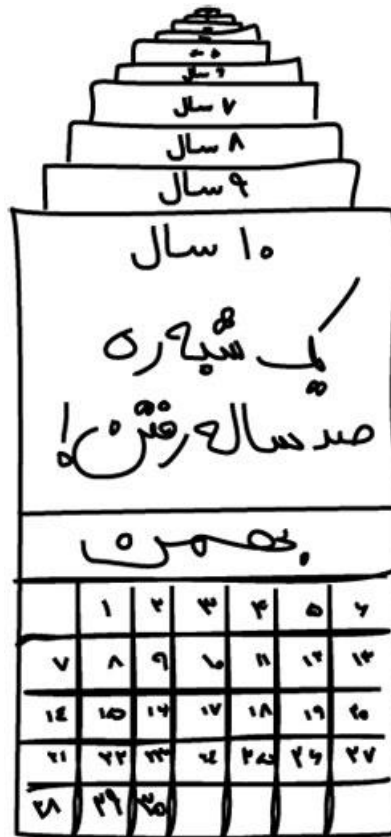 ۶ سال
۷ سال
۸ سال
۹ سال
۱۰ سال
یک شبه ره
صد ساله رفتن!
بهمن
۱ ۲ ۳ ۴ ۵ ۶
۷ ۸ ۹ ۱۰ ۱۱ ۱۲ ۱۳
۱۴ ۱۵ ۱۶ ۱۷ ۱۸ ۱۹ ۲۰
۲۱ ۲۲ ۲۳ ۲۴ ۲۵ ۲۶ ۲۷
۲۸ ۲۹ ۳۰